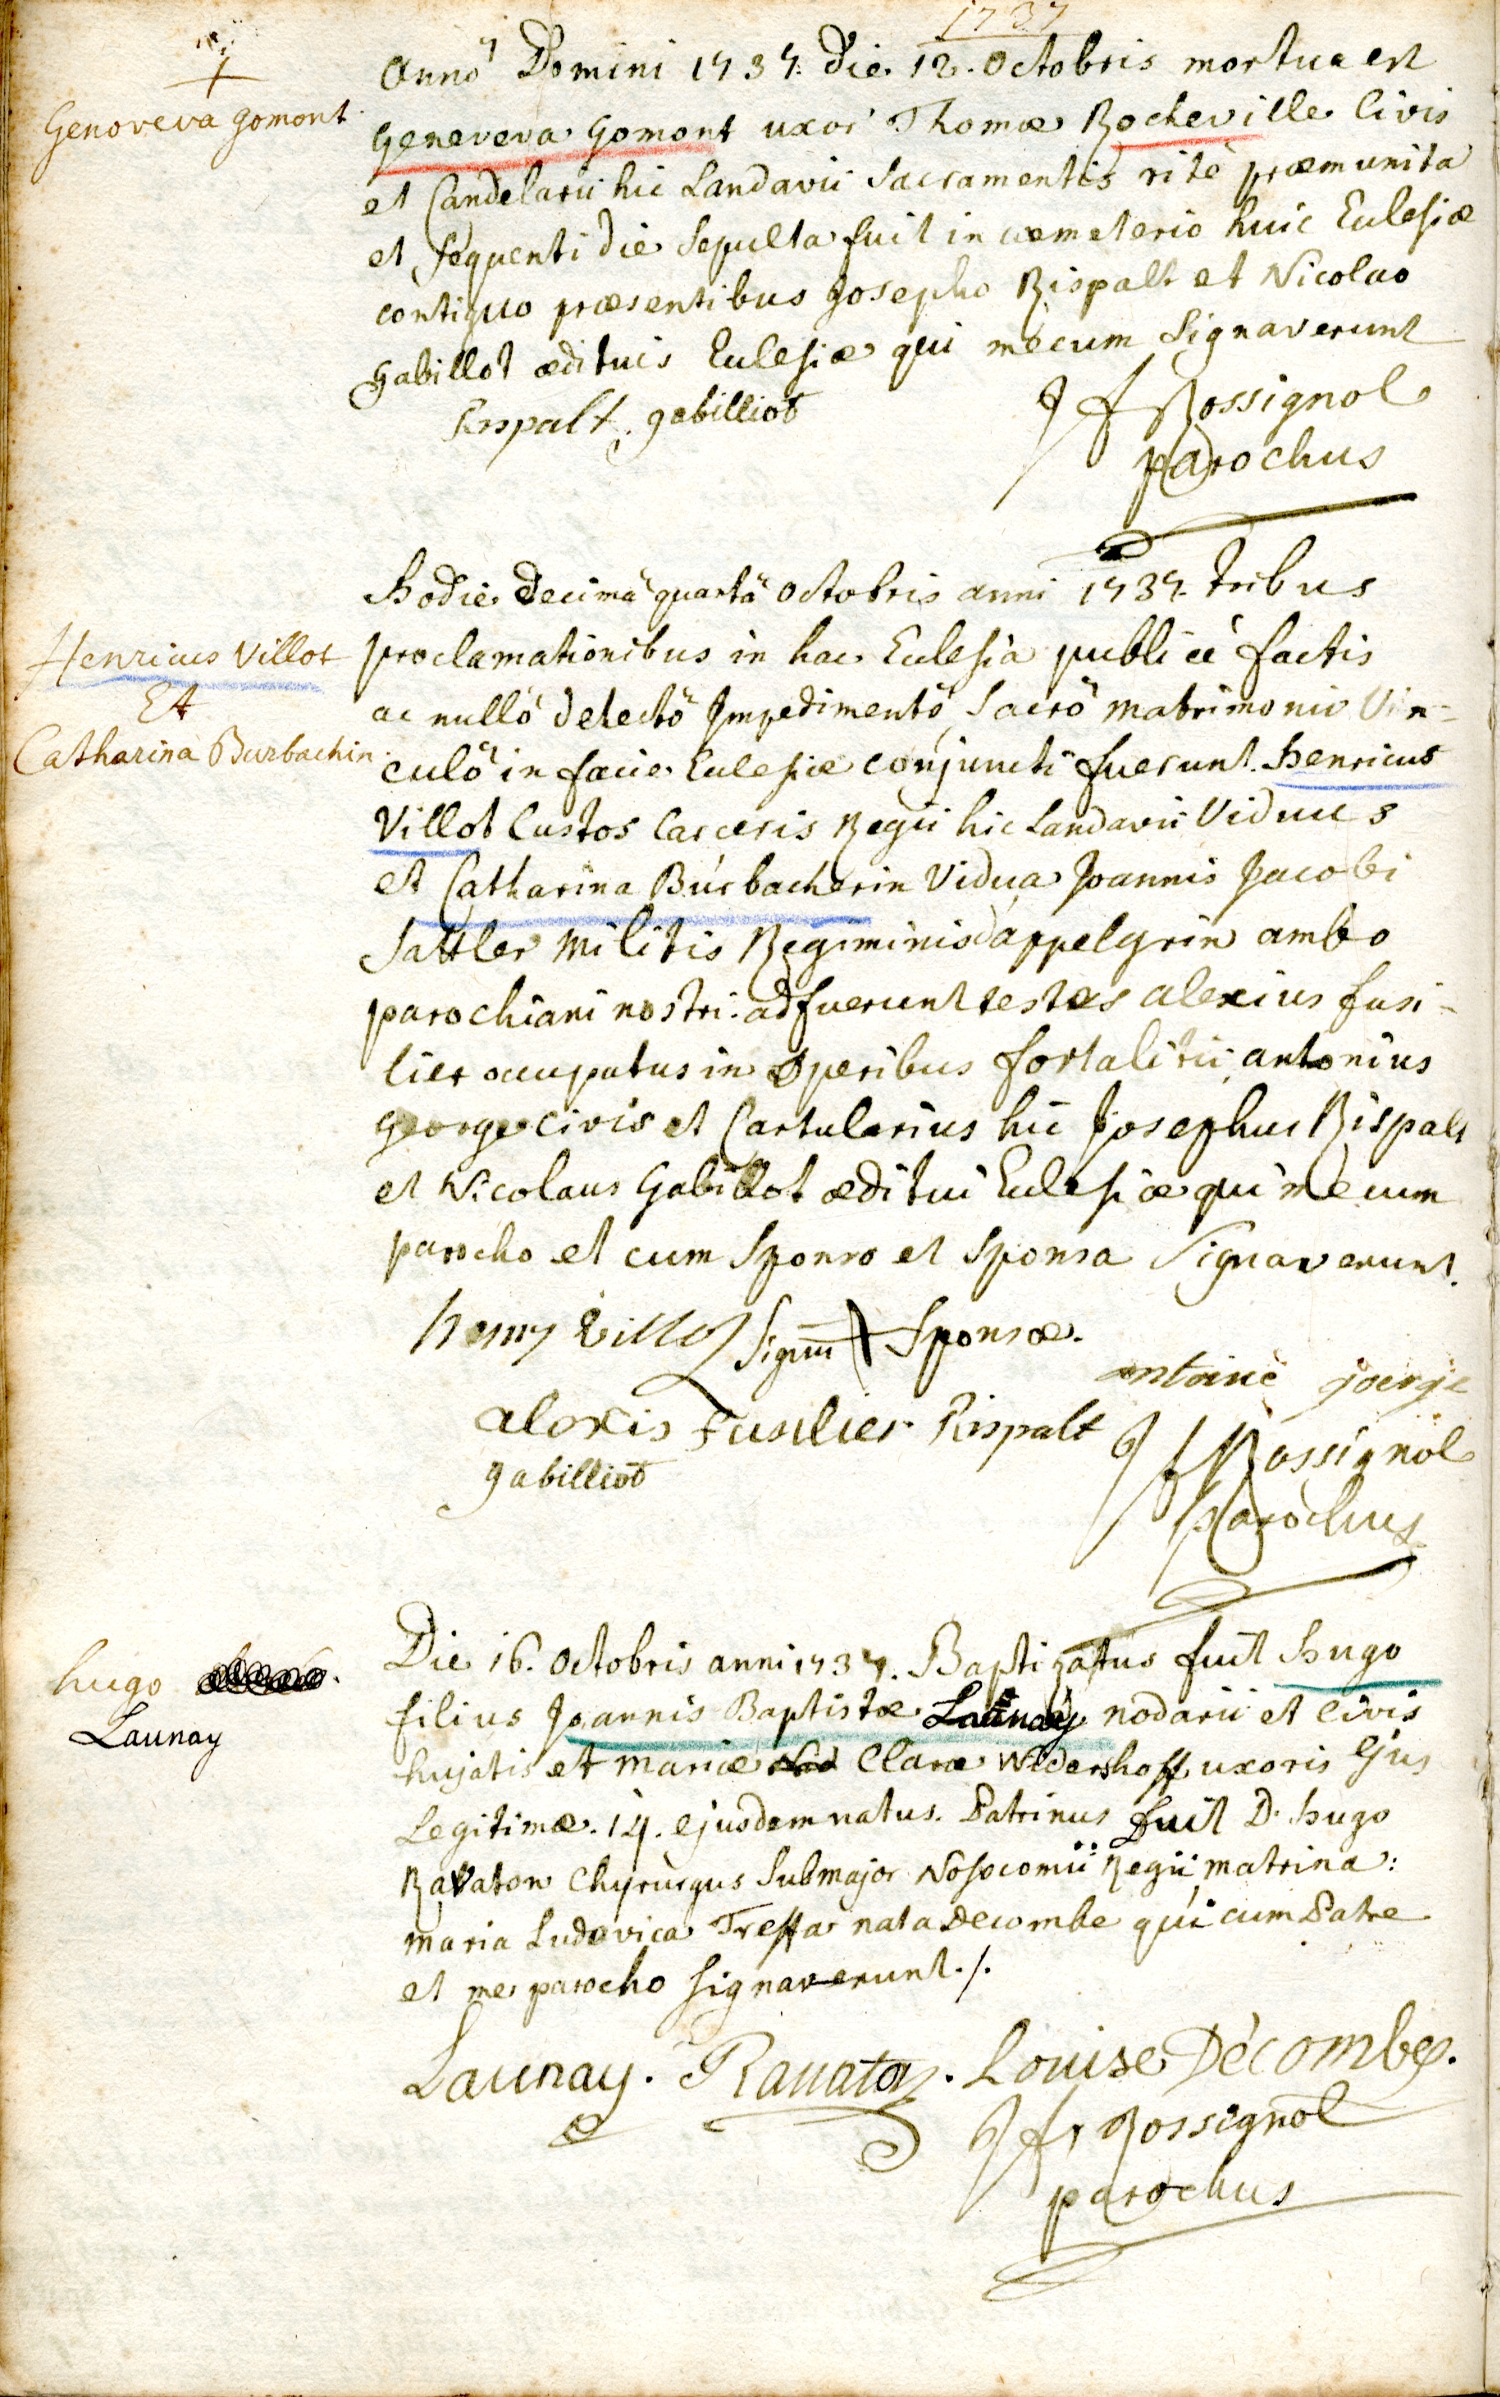 1737
Genoveva Gomont
Annô Domini 1737. die 12. Octobris mortua est
Geneveva Gomont uxor Thomæ Rocheville Civis
et Candelarii hic Landavii Sacramentis rite præmunita
et sequenti die Sepulta fuit in cœmeterio huic Eclesiæ
contiguo præsentibus Josepho Rispalt et Nicolao
Gabillot ædituis Eclesiæ qui mecum Signaverunt
Rispalt gabilliot
J f Rossignol
parochus
Henricus Villot
Et
Catharina Burbachin
Hodie decimâ quartâ Octobris anni 1737. tribus
proclamationibus in hac Eclesia publicè factis
ac nullô detectô Impedimentô Sacrô matrimonii Vin=
culô in facie Eclesiæ conjuncti fuerunt Henricus
Villot Custos Carceris Regii hic Landavii Viduus
et Catharina Burbacherin Vidua Joannis Jacobi
Sattler Militis Regiminis d'appelgrin ambo
parochiani nostri: adfuerunt testes alexius fusi-
lier occupatus in Operibus fortalitii, antonius
george civis et Cartularius hic Josephus Rispalt
et Nicolaus Gabillot æditui Eclesiæ qui mecum
parocho et cum Sponso et Sponsa Signaverunt.
henry Villot Signum Sponsæ.
antoine joerge
alexis Fusilier Rispalt
gabilliot
J f Rossignol
parochus
hugo
Launay
Die 16. Octobris anni 1737. Baptizatus fuit Hugo
filius Joannis Baptistæ Launay nodarii et Civis
hujatis et Mariæ Claræ Widershoff uxoris Ejus
Legitimæ. 14. ejusdem natus. Patrinus fuit D. Hugo
Ravaton Chyrurgus Submajor Nosocomii Regii matrina:
maria Ludovica Treffa nata Decombe qui cum Patre
et me parocho Signaverunt./.
Launay. Rauaton. Louise Décombes.
J f Rossignol
parochus